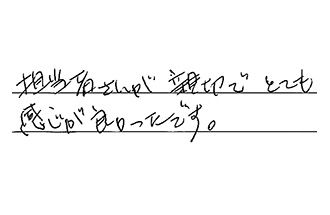 担当者さんが親切でとても
感じが良かったです。